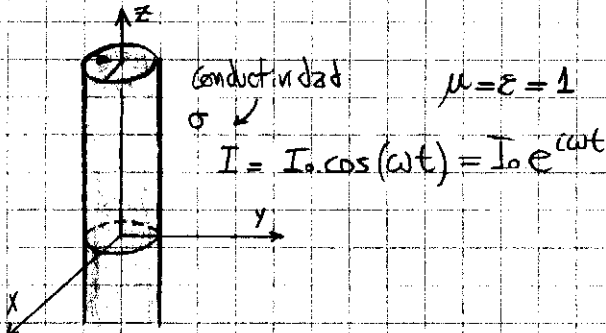 z
conductividad
σ
μ = ε = 1
I = I₀ cos(ωt) = I₀ e^{iωt}
y
x